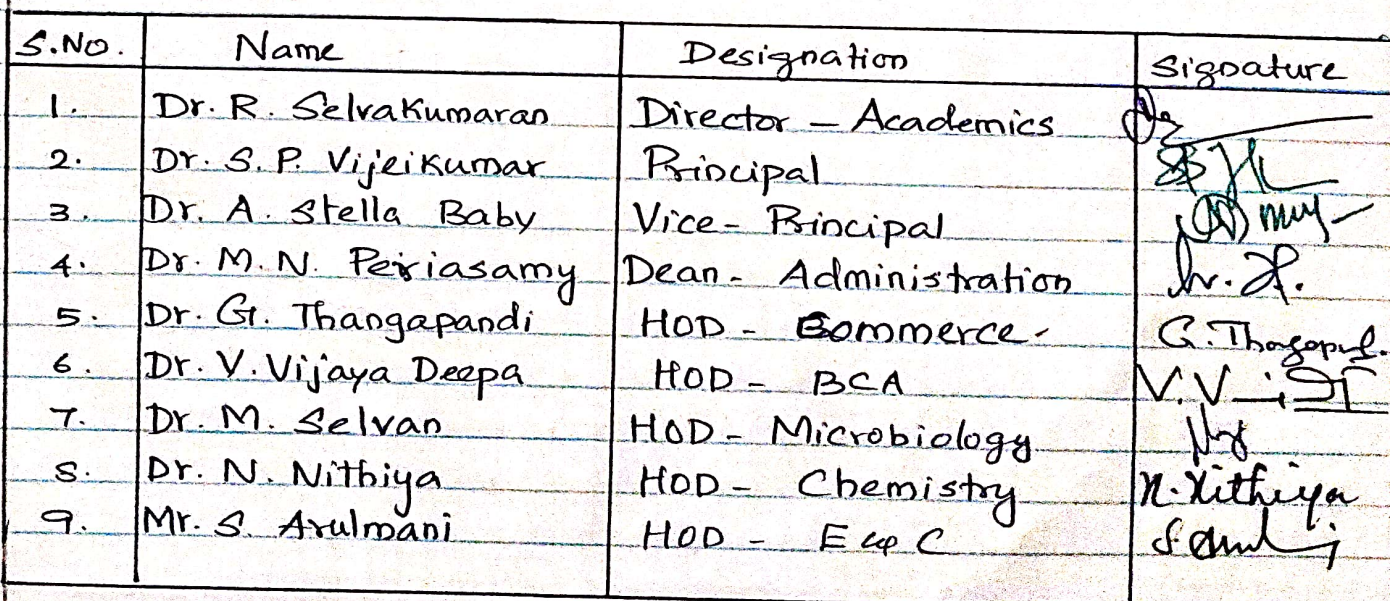 S.No. Name Designation Signature
1. Dr. R. Selvakumaran Director - Academics
2. Dr. S. P. Vijeikumar Principal
3. Dr. A. Stella Baby Vice - Principal
4. Dr. M. N. Periasamy Dean - Administration
5. Dr. G. Thangapandi HOD - Commerce - G. Thagapnd.
6. Dr. V. Vijaya Deepa HOD - BCA V. V
7. Dr. M. Selvan HOD - Microbiology
8. Dr. N. Nithiya HOD - Chemistry N. Nithiya
9. Mr. S. Arulmani HOD - E & C